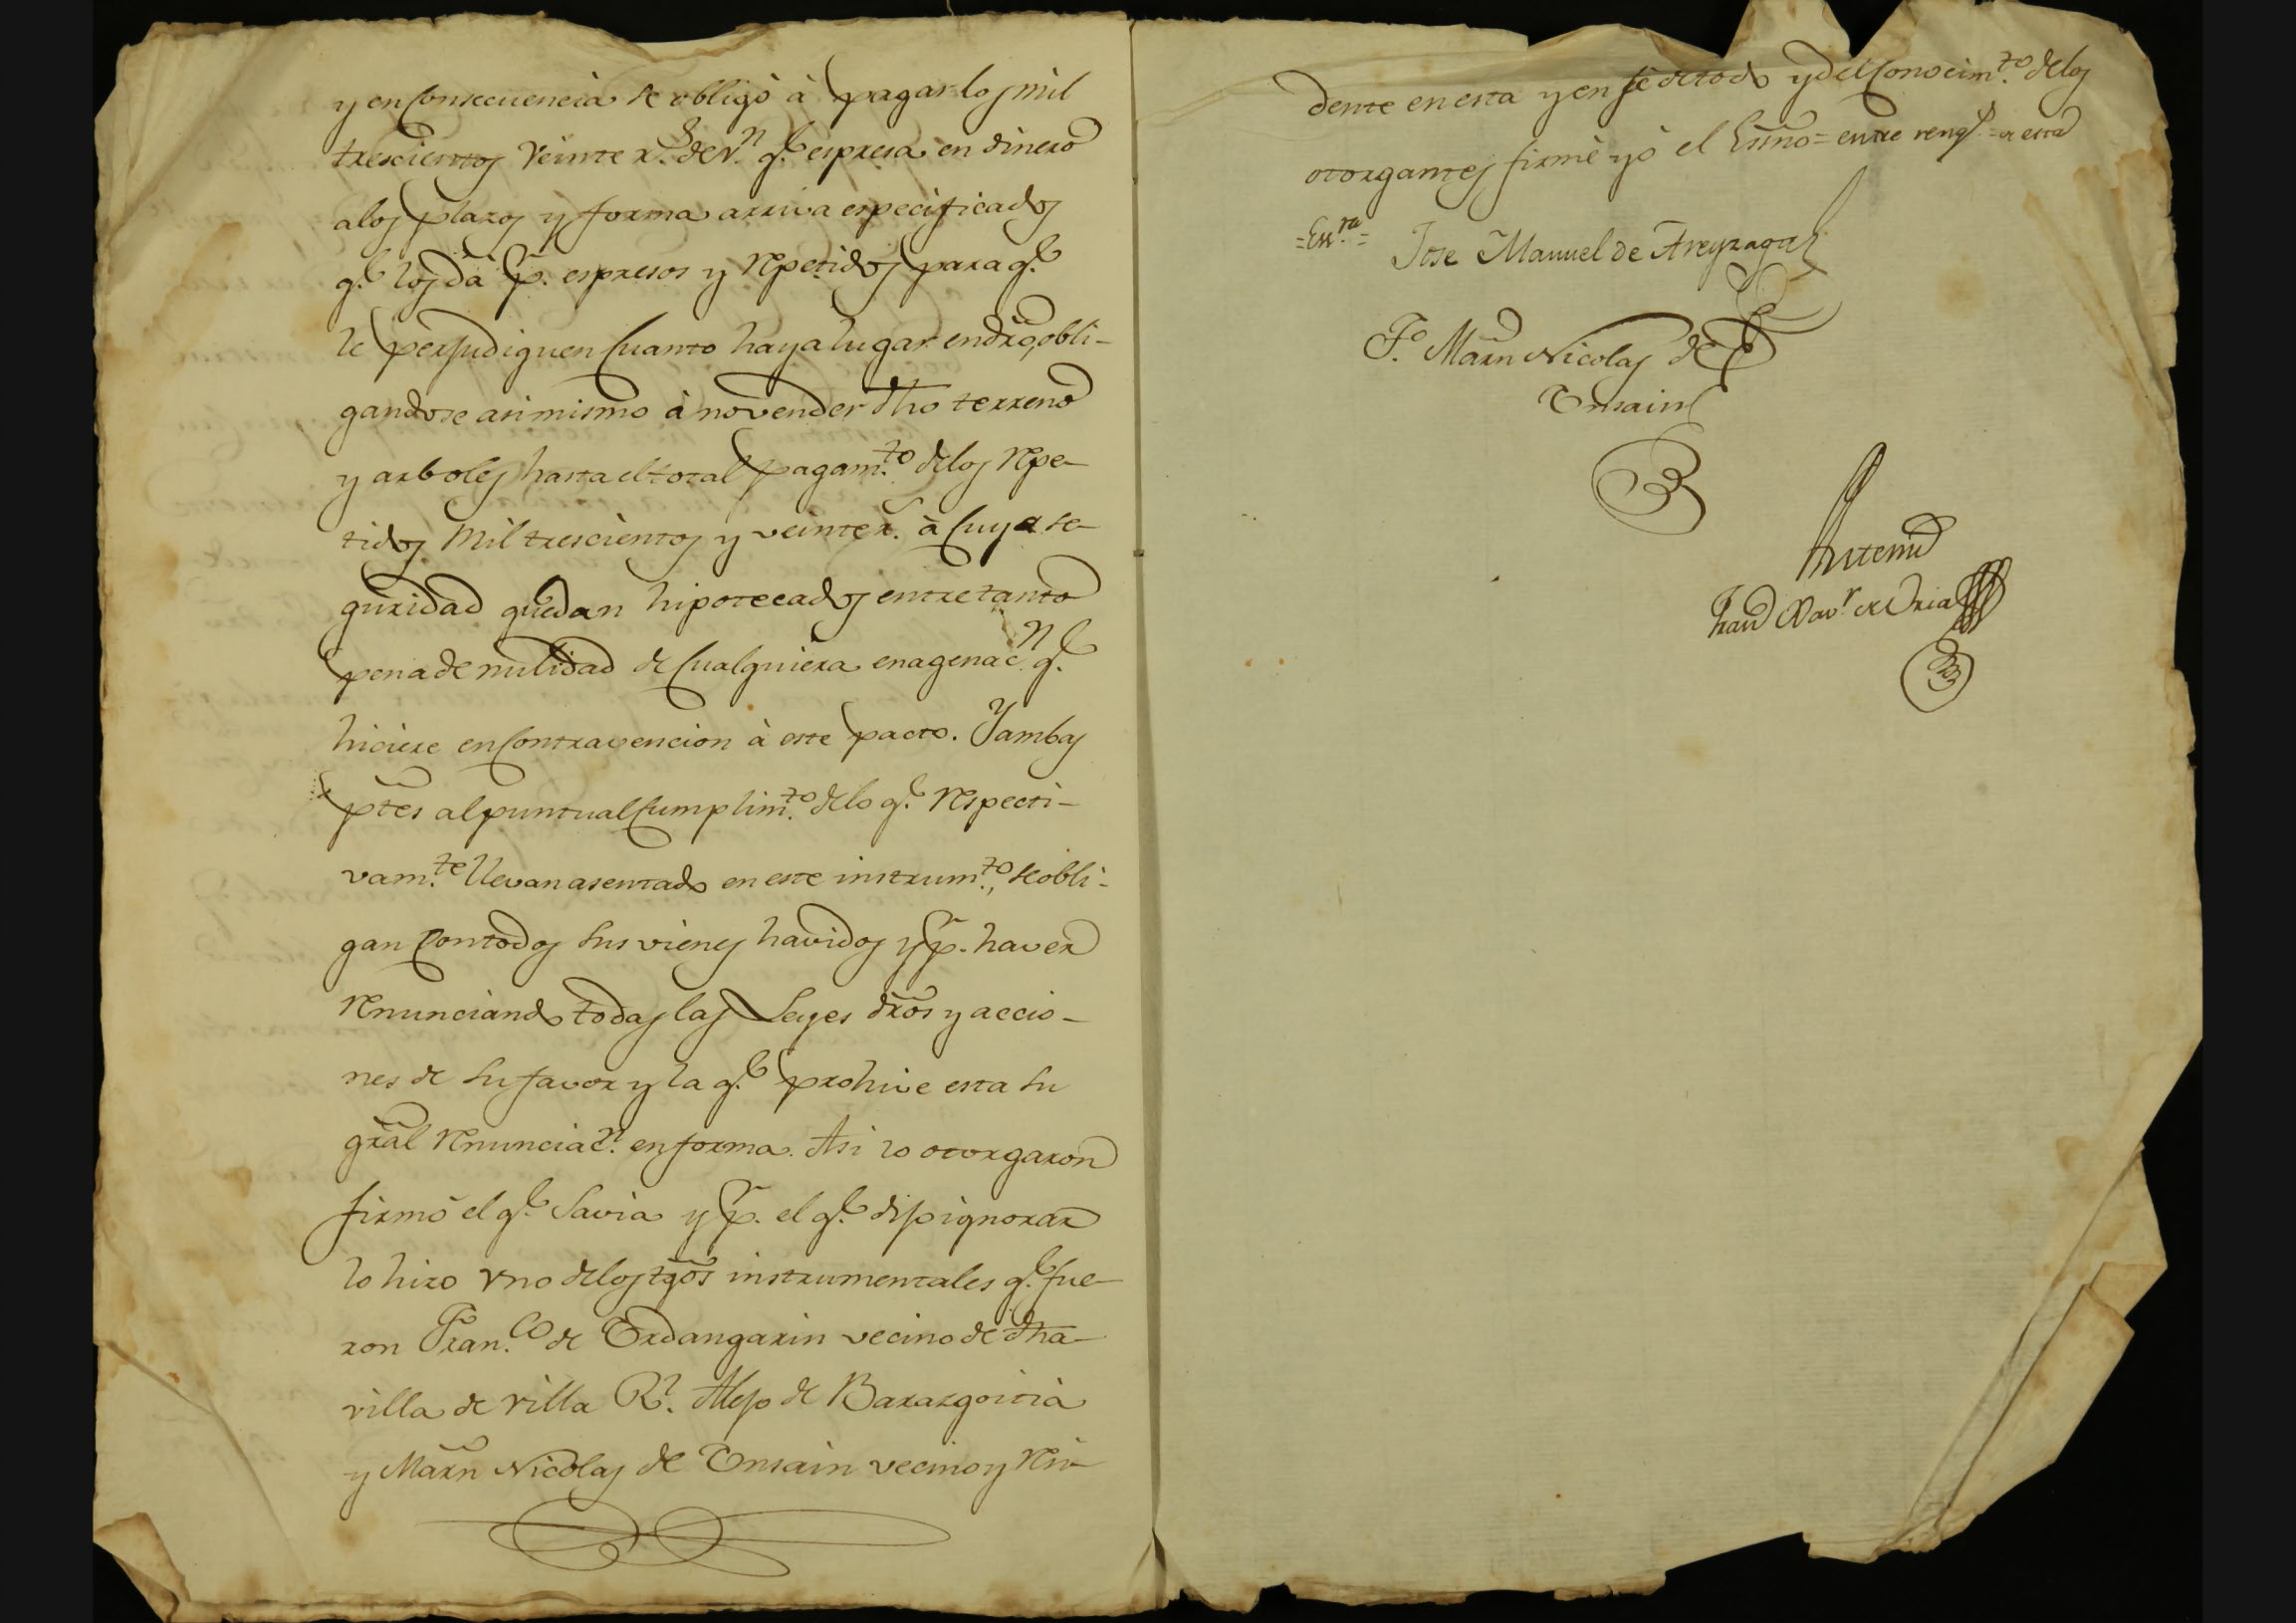 y en consecuencia se obligò à pagar los mil
trescientos veinte r.s de v.n q.e espresa en dinero
a los plazos y forma arriva especificados
q.e los dà p.r espresos y repetidos para q.e
le perjudiquen cuanto haya lugar en dro, obli-
gandose asimismo à no vender dho terreno
y arboles hasta el total pagam.to de los repe-
tidos mil trescientos y veinte r.s à cuya se-
guridad quedan hipotecados entretanto
pena de nulidad de cualquiera enagenac.n q.e
hiciere en contravencion à este pacto. Y ambas
ptes al puntual cumplim.to de lo q.e respecti-
vam.te llevan asentado en este instrum.to, se obli-
gan con todos sus vienes havidos y p.r haver
renunciando todas las Leyes dros y accio-
nes de su favor y la q.e prohive esta su
gral renunciac.n en forma. Asi lo otorgaron
firmò el q.e savia y p.r el q.e dijo ignorar
lo hizo uno de los tgos instrumentales q.e fue-
ron Fran.co de Urdangarin vecino de dha
villa de villa R.l Alejo de Barargoitia
y Marn Nicolas de Unsain vecino y resi-
dente en esta y en fè de todo y del conocim.to de los
otorgantes firmè yò el Esno = entre reng.s = a esta
= Ess.ra =
Jose Manuel de Areyzaga
T.o Marn Nicolas de
Unsain
Antemi
Fran Xav.r de Uria